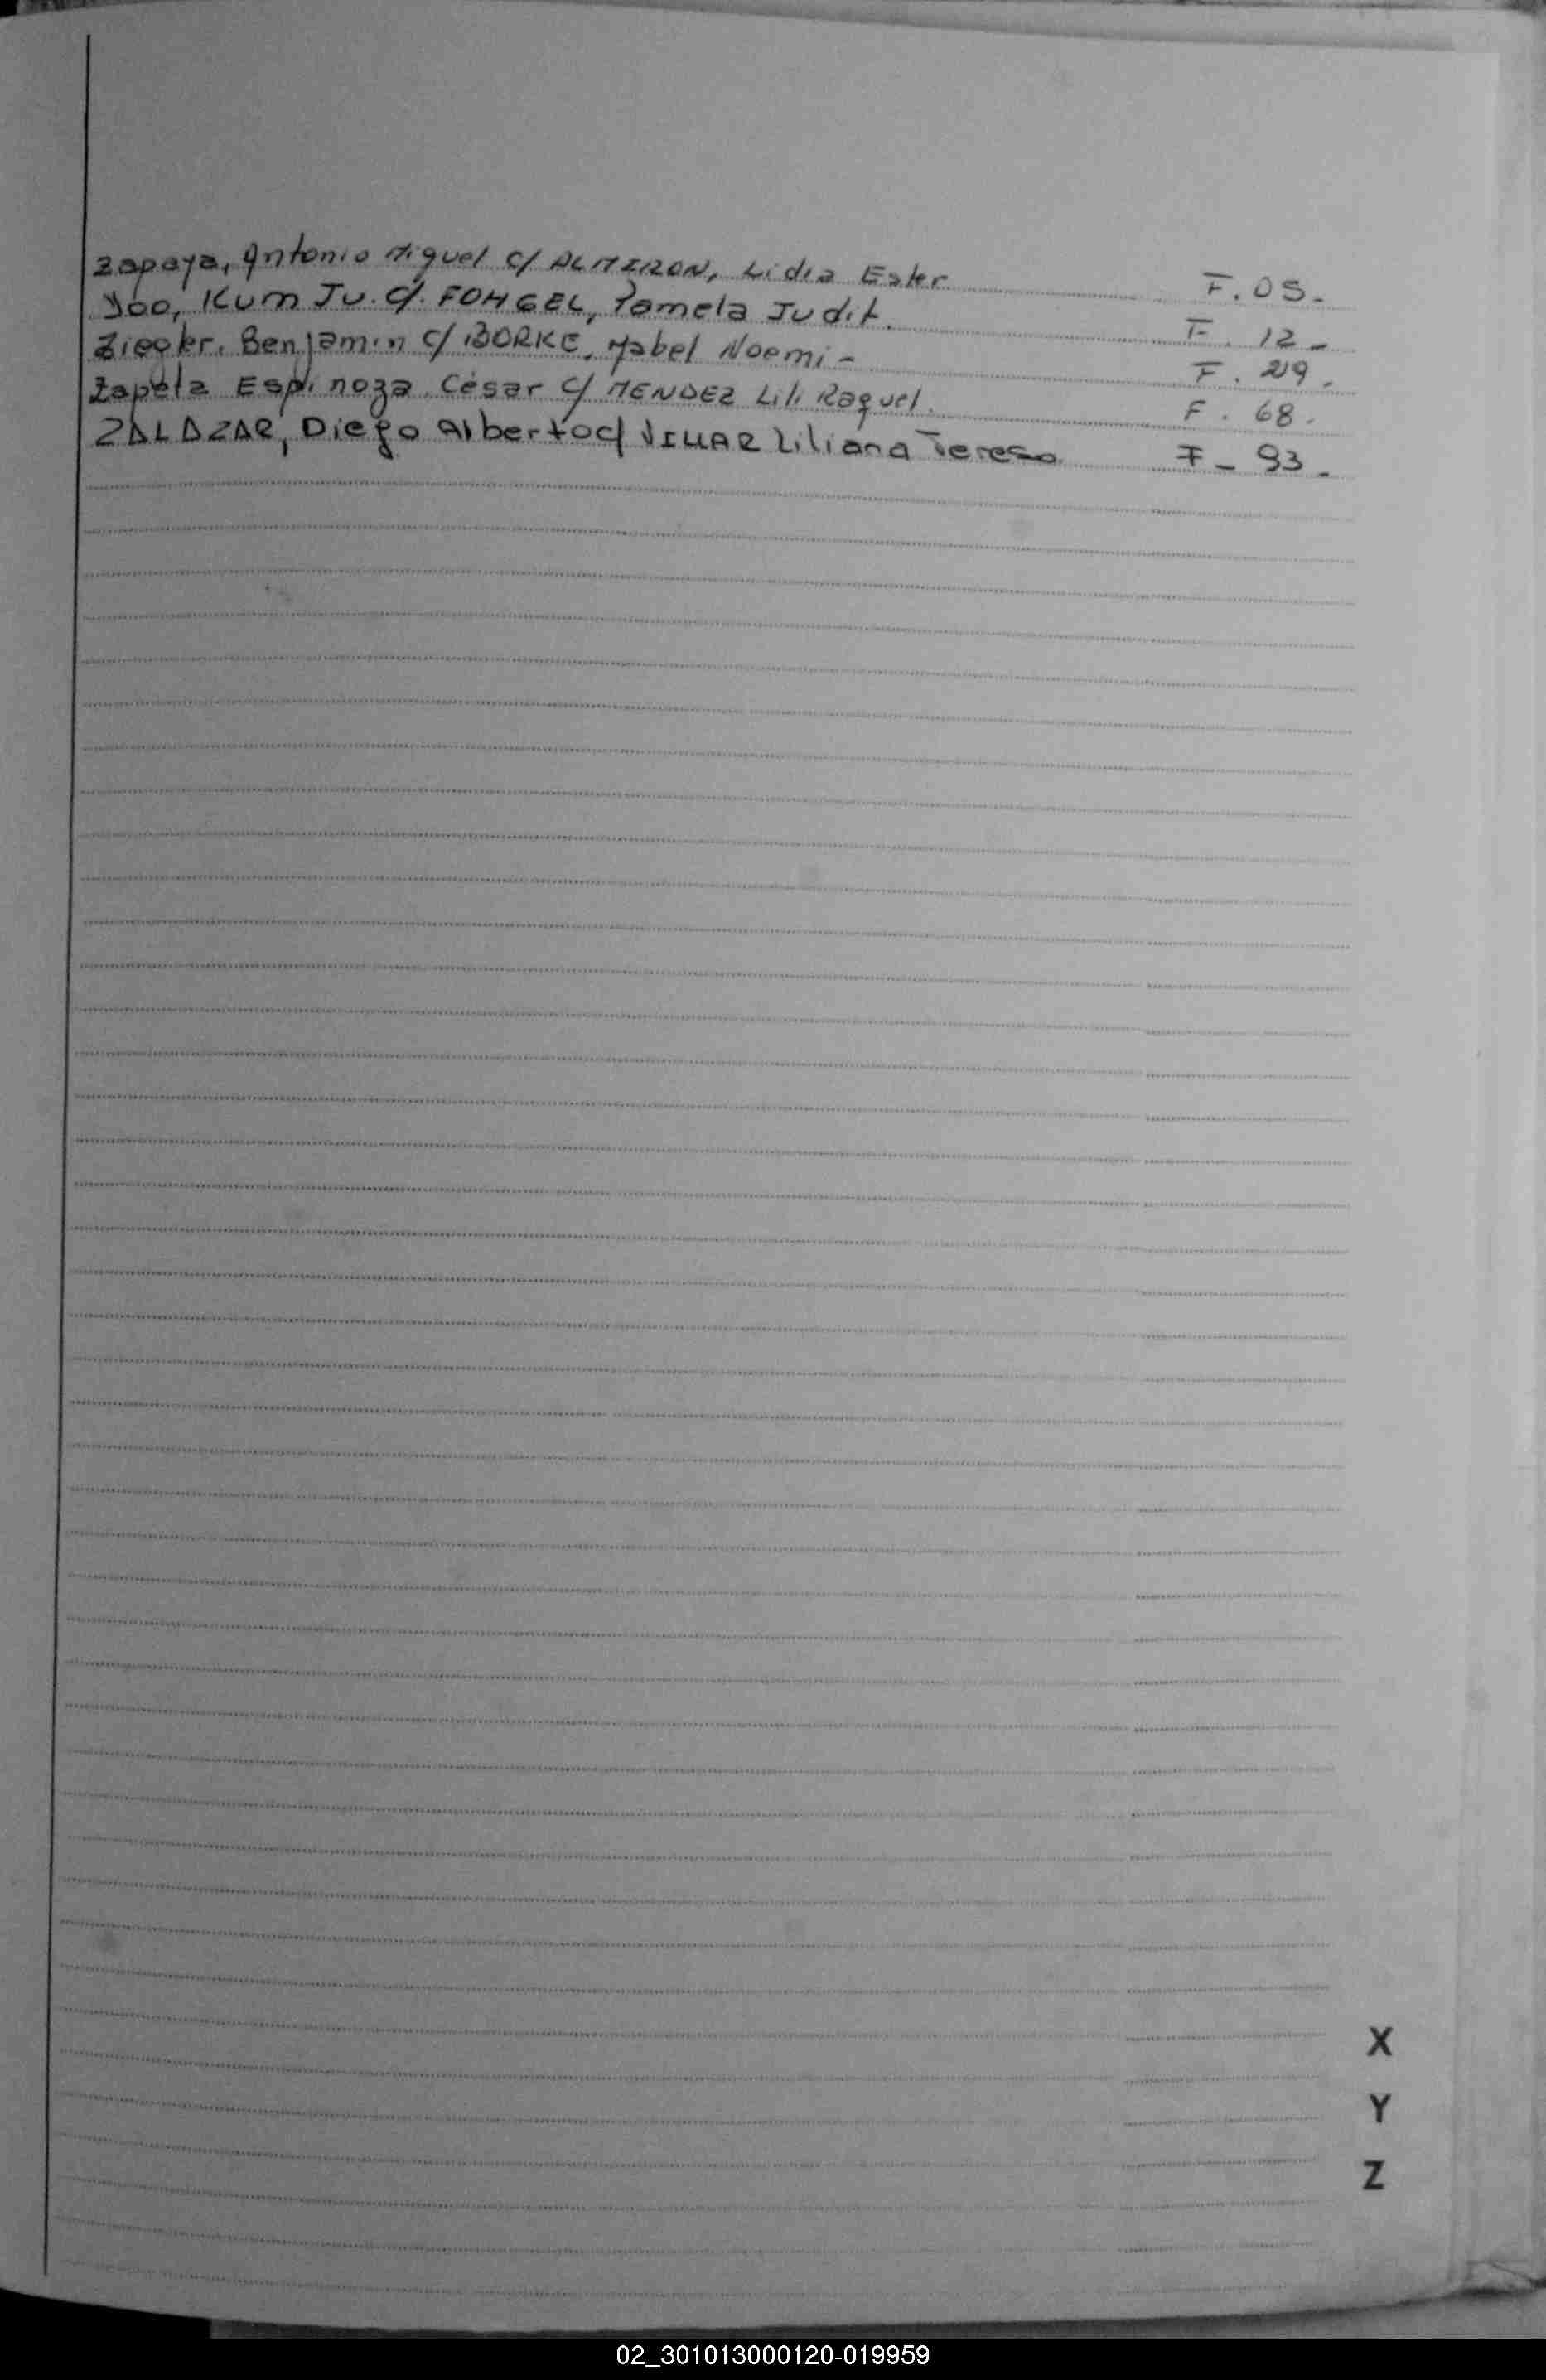 Zapaya, Antonio Miguel c/ ALMIRON, Lidia Ester F. 05.
Yoo, Kum Ju. c/. FOHGEL, Pamela Judit. F. 12_
Ziegler. Benjamin c/ BORKE, Mabel Noemi - F. 29.
Zapeta Espinoza. César c/ MENDEZ Lili Raquel. F. 68.
ZALAZAR, Diego Alberto c/ Liliana Teresa F_ 93_
X
Y
Z
02_301013000120-019959